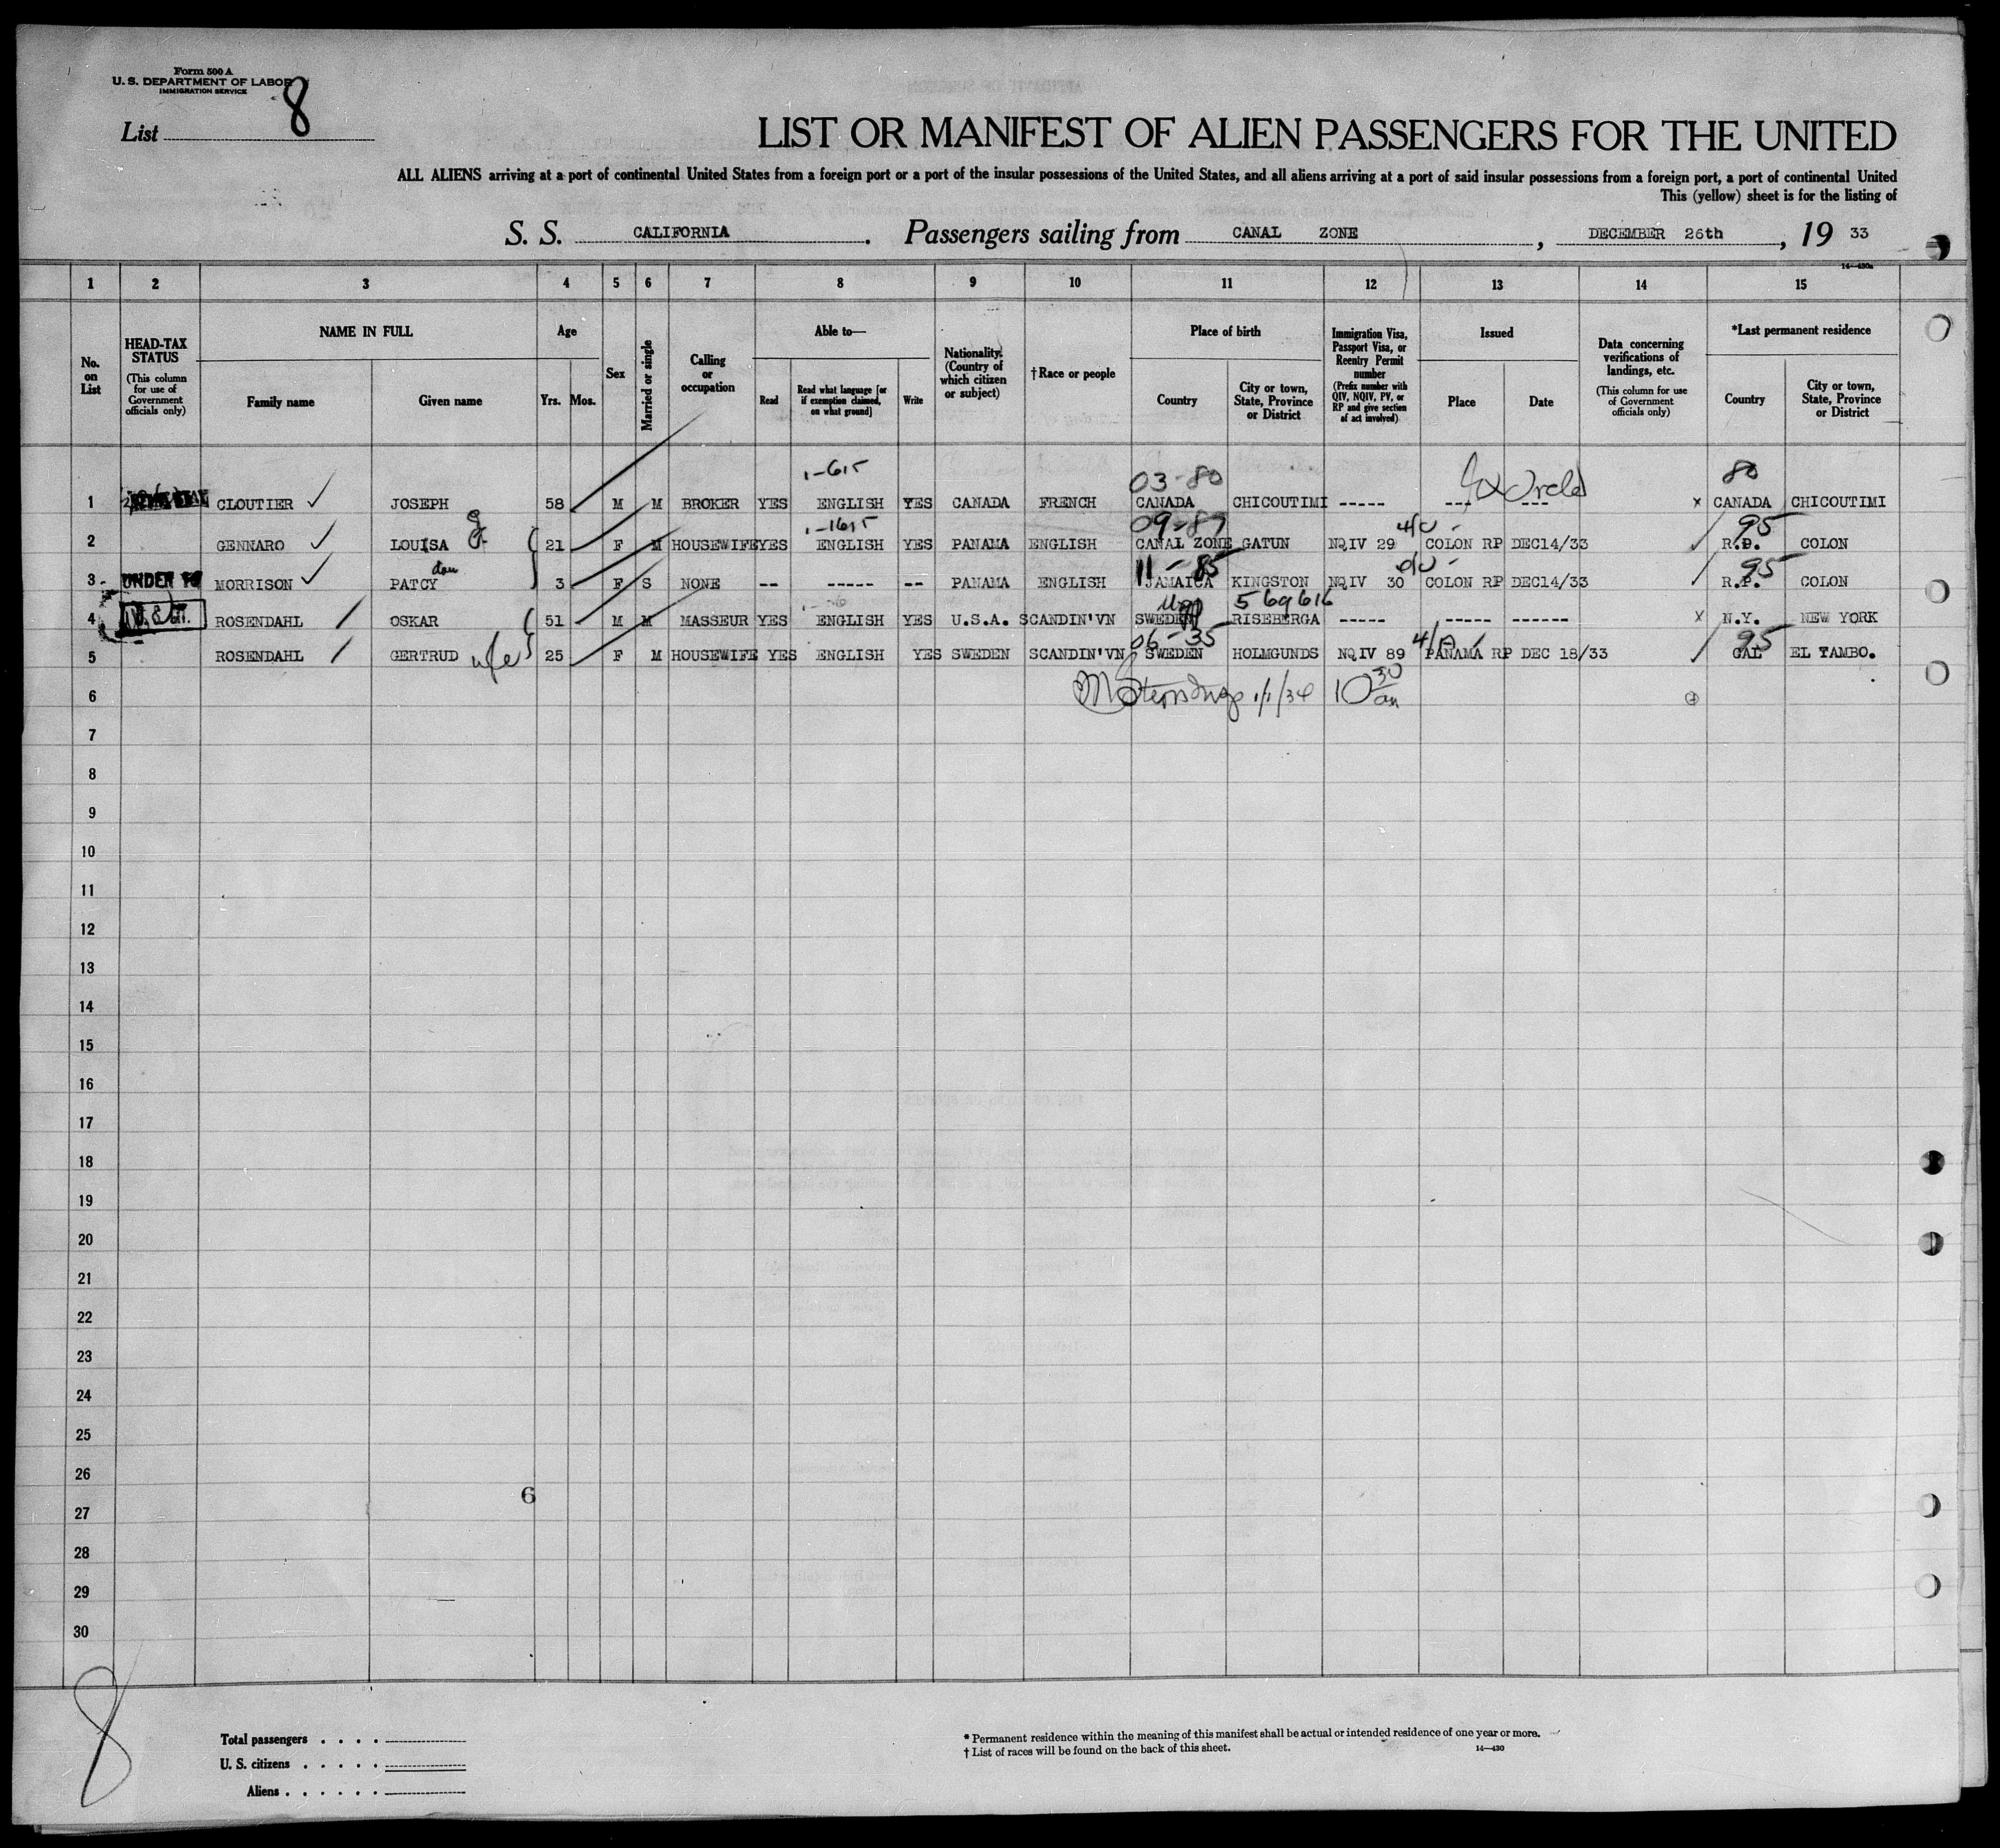 Form 500 A
U. S. DEPARTMENT OF LABOR
IMMIGRATION SERVICE
List 8
LIST OR MANIFEST OF ALIEN PASSENGERS FOR THE UNITED
ALL ALIENS arriving at a port of continental United States from a foreign port or a port of the insular possessions of the United States, and all aliens arriving at a port of said insular possessions from a foreign port, a port of continental United
This (yellow) sheet is for the listing of
S. S. CALIFORNIA. Passengers sailing from CANAL ZONE, DECEMBER 26th, 19 33
14—430a
1 2 3 4 5 6 7 8 9 10 11 12 13 14 15
No. on List
HEAD-TAX STATUS (This column for use of Government officials only)
NAME IN FULL
Family name Given name
Age
Yrs. Mos.
Sex
Married or single
Calling or occupation
Able to—
Read
Read what language [or if exemption claimed, on what ground]
Write
Nationality. (Country of which citizen or subject)
†Race or people
Place of birth
Country
City or town, State, Province or District
Immigration Visa, Passport Visa, or Reentry Permit number (Prefix number with QIV, NQIV, PV, or RP and give section of act involved)
Issued
Place Date
Data concerning verifications of landings, etc. (This column for use of Government officials only)
*Last permanent residence
Country
City or town, State, Province or District
1-615 03-80 80
1 CLOUTIER JOSEPH 58 M M BROKER YES ENGLISH YES CANADA FRENCH CANADA CHICOUTIMI ----- ---- --- x CANADA CHICOUTIMI
1-1615 09-87 4/0 - 95
2 GENNARO LOUISA J. 21 F M HOUSEWIFE YES ENGLISH YES PANAMA ENGLISH CANAL ZONE GATUN NQIV 29 COLON RP DEC14/33 R.P. COLON
dau 11-85 95
3 UNDER 16 MORRISON PATCY 3 F S NONE -- ----- -- PANAMA ENGLISH JAMAICA KINGSTON NQIV 30 COLON RP DEC14/33 R.P. COLON
569616
4 ROSENDAHL OSKAR 51 M M MASSEUR YES ENGLISH YES U.S.A. SCANDIN'VN SWEDEN RISEBERGA ----- ----- ------ x N.Y. NEW YORK
06-35 95
5 ROSENDAHL GERTRUD wife 25 F M HOUSEWIFE YES ENGLISH YES SWEDEN SCANDIN'VN SWEDEN HOLMGUNDS NQIV 89 PANAMA RP DEC 18/33 CAL EL TAMBO.
6 1/1/34 10 30 am
7
8
9
10
11
12
13
14
15
16
17
18
19
20
21
22
23
24
25
26
6
27
28
29
30
8
Total passengers . . . .
U. S. citizens . . . . .
Aliens . . . . . .
* Permanent residence within the meaning of this manifest shall be actual or intended residence of one year or more.
† List of races will be found on the back of this sheet.
14—430